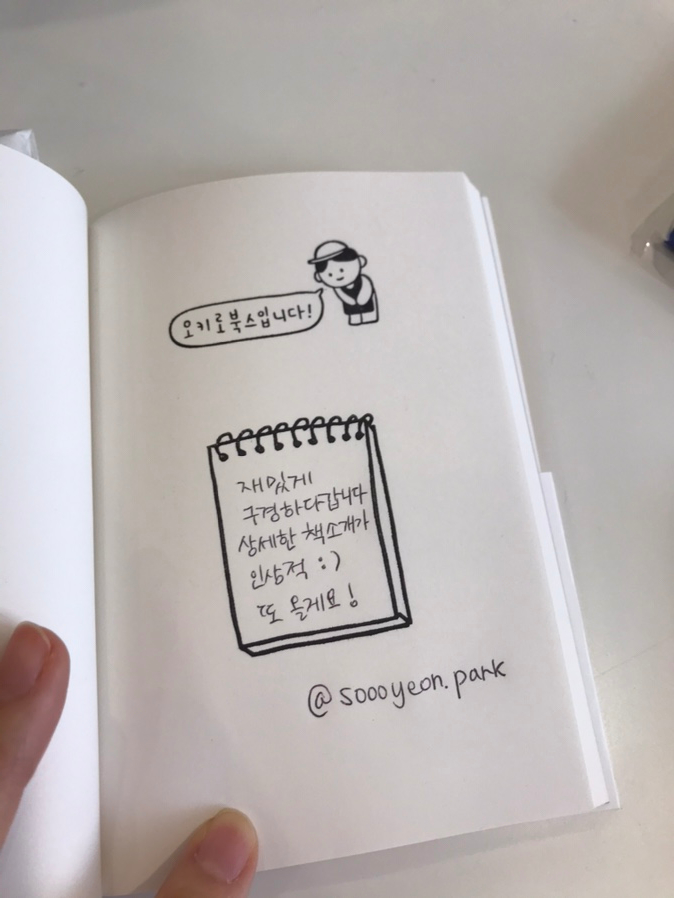 오키로북스입니다!
재밌게
구경하다갑니다
상세한 책소개가
인상적 :)
또 올게요!
@soooyeon.park